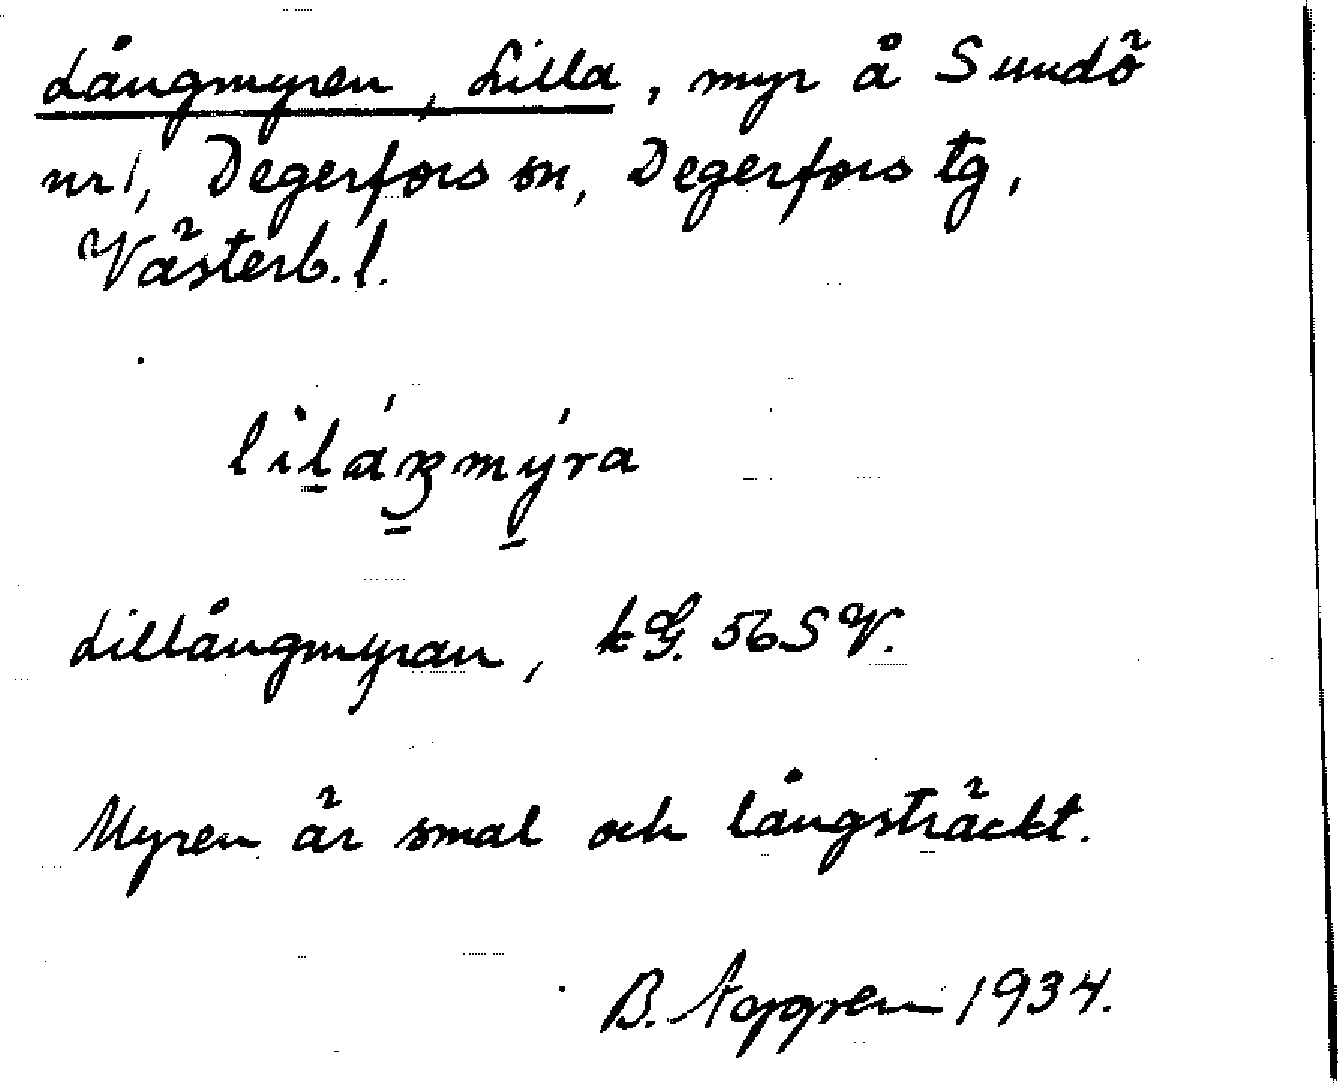 Långmyren, Lilla, myr å Sundö
nr 1, Degerfors sn, Degerfors tg,
Västerb. l.
Lillångmyran, kG. 56 SV.
Myren är smal och långsträckt.
B. 1934.